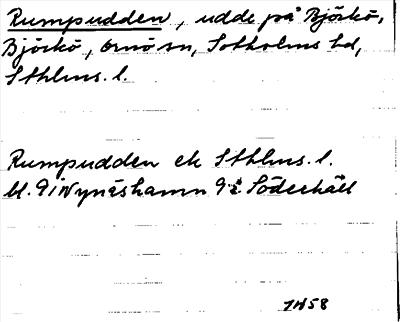 Rumpudden, udde på Björkö,
Björkö, Ornö sn, Sotholms hd,
Sthlms. l.
Rumpudden ek Sthlms. l.
bl. 91 Nynäshamn 9i Söderhäll
1958